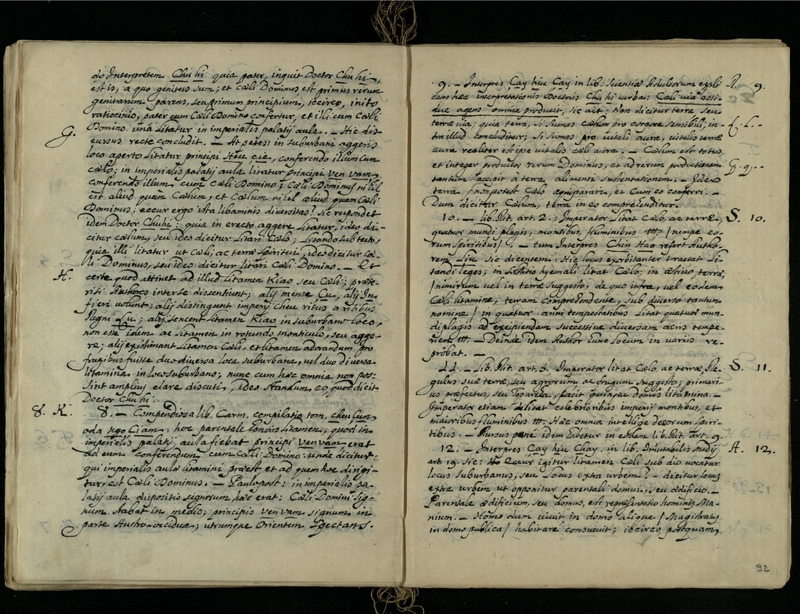 do Interpretem Chu hi: quia pater, inquit Doctor Chu hi,
est is, a quo genitus sum; et Cæli Dominus est primus rerum
generarum parens, seu primum principium, idcirco, inito
ratiocinio, pater cum Cæli Domino confertur, et illi cum Cæli
Domino una litatur in imperialis palatij aula. — Hic dis-
G. cursus recte concludit. — At patess in suburbani aggeris
loco aperto litatur principi Heu cie, conferendo illum cum
cælo; in imperialis palatij aula litatur principi ven vam
conferendo illum cum Cæli Domino; Cæli Dominus nihil
est aliud quam Cælum, et Cælum nihil aliud quam Cæli
Dominus; accur ergo ista libaminis diversitas? Sic respondet
idem Doctor Chu hi: quia in erecto aggere litatur, ideo di-
citur cælum, seu ideo dicitur litari Cælo; litando sub tecto,
quia illi litatur ut Cæli, ac terræ Spiritui, ideo dicitur Cæ-
li Dominus, seu ideo dicitur litari Cæli Domino. — Et
H. certe quod attinet ad illud litamen Kiao seu Cæli; præte-
riti Authores inter se dissentiunt; alij mente Cu, alij In
fieri volunt; alij distinguunt imperij Cheu ritus a ritibus
Regni Lu; alij sentent litamen Kiao in suburbano loco,
non esse idem ac litamen in rotundo monticulo, seu agge-
re; alij existimant litamen Cæli, et litamen adorandum pro
frugibus fuisse duo diversa loca suburbana, vel duo diversa
litamina in loco suburbano; nunc cum hæc omnia non pos-
sint amplius clare discuti, ideo standum eo quod dicit
Doctor Chu hi.
8. K. 8. — Compendiosa lib. Carm. compilatio tom. cheu lum
oda ngo Ciam: hoc parentale honoris litamen, quod in
imperialis palatij aula fiebat principi ven vam erat
ad eum conferendum cum Cæli Domino: unde dicitur,
qui imperialis aulæ litamini præest et ad quem hæc dirigi-
tur, est Cæli Dominus. — Paulo post: in imperialis pa-
latij aula dispositio signorum hæc erat: Cæli Domini sig-
num stabat in medio; principis ven vam signum in
parte Austro-occidua; utrumque Orientem spectans.
9. — Interpres Cay hiu Cay in lib. Scientiæ Adultorum expli- R. 9.
cans hæc interpretationis Doctoris Chu hi verba: Cæli via assi-
due agens omnia producit, sic ait: Non dicitur terræ, seu
terræ via, quia terra, si sumas Cælum pro corpore sensibili, in-
tra illud concluditur; si sumas pro inviali aura, vitalis terræ
aura realiter est ipsa vitalis cæli aura. — Cælum est totus
et integer productor rerum Dominus, et ad rerum productionem
tantum accipit a terra alimenti sustentationem. — Ideo
terra non potest Cælo comparari, et cum eo conferri. —
Dum dicitur Cælum, terra in eo comprehenditur.
10. — lib. Rit. art. 2.: Imperator litat Cælo, ac terræ, S. 10.
quatuor mundi plagis, montibus, fluminibus &c. / nempe eo-
rum spiritibus /. — tum Interpres Chin Hao refert Autho-
rem Liu sic dicentem: Hic locus exorbitanter tractat li-
tandi leges; in solstitio hyemali litat Cælo; in æstivo, terræ,
/ nimirum vel in terræ suggesto, de quo infra, vel eodem
Cæli litamine, terram comprehendente, sub diverso tantum
nomine / in quatuor anni tempestatibus litat quatuor mun-
di plagis ad excipiendam successive diversam aëris tempe-
riem &c. — Deinde idem Author hunc locum in varijs re-
probat. —
11. — lib. Rit. art. 5. Imperator litat Cælo, ac terræ, Re- S. 11.
gulus suæ terræ, seu agrorum ac originum suggesto; primari-
us præfectus, seu Toparcha, facit quinque domus litamina. —
Imperator etiam litat celebrioribus imperij montibus, et
maioribus fluminibus &c. Hæc omnia intellige de eorum spiri-
tibus. — Rursus pæne idem dicitur in eodem lib. Rit. art. 9.
12. — Interpres Cay heu Chay, in lib. Immutabilis medij A. 12.
art. 19. sic: At quur igitur litamen Cæli sub dio vocatur
locus suburbanus, seu locus extra urbem? — dicitur locus
extra urbem ut opponitur parentali domui, seu ædificio. —
Parentale ædificium, seu domus, est repræsentatio hominis Ma-
nium. — Homo dum vivit in domo aliqua / Magistratus
in domo publica / habitare consuevit; idcirco, postquam
32